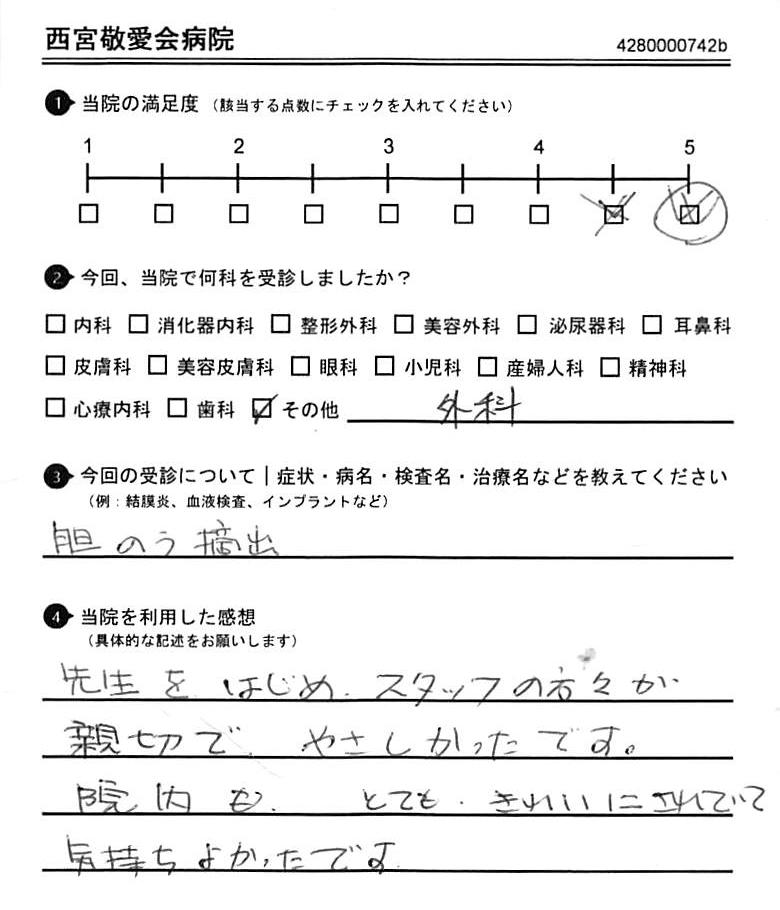 西宮敬愛会病院
4280000742b
1 当院の満足度（該当する点数にチェックを入れてください）
1 2 3 4 5
2 今回、当院で何科を受診しましたか？
□内科 □消化器内科 □整形外科 □美容外科 □泌尿器科 □耳鼻科
□皮膚科 □美容皮膚科 □眼科 □小児科 □産婦人科 □精神科
□心療内科 □歯科 ☑その他 外科
3 今回の受診について｜症状・病名・検査名・治療名などを教えてください
（例：結膜炎、血液検査、インプラントなど）
胆のう摘出
4 当院を利用した感想
（具体的な記述をお願いします）
先生をはじめ、スタッフの方々が
親切で、やさしかったです。
院内も、とても、きれいにされていて
気持ちよかったです